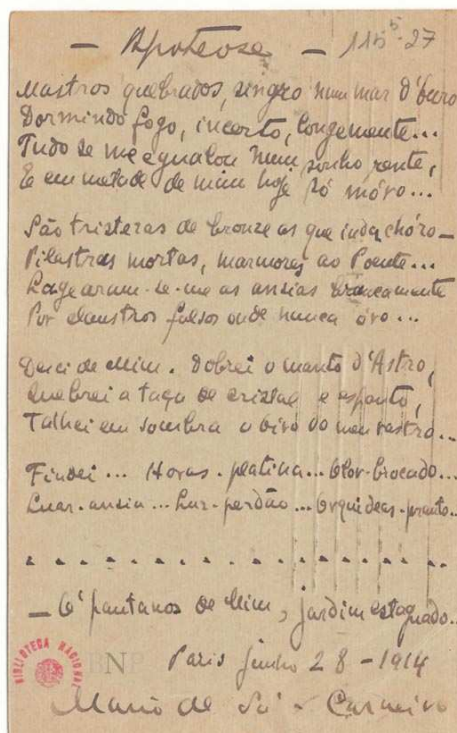 — Apoteose — 115⁵-27
Mastros quebrados, singro num mar d'Ouro
Dormindo fogo, incerto, longemente...
Tudo se me egualou num sonho rente,
E em metade de mim hoje só móro...
São tristezas de bronze as que inda chóro—
Pilastras mortas, marmores ao Poente...
Lagearam-se-me as ansias brancamente
Por claustros falsos onde nunca óro...
Desci de Mim. Dobrei o manto d'Astro,
Quebrei a taça de cristal e espanto,
Talhei em sombra o Oiro do meu rastro...
Findei... Horas-platina... Olor-brocado...
Luar-ansia... Luz-perdão... Orquideas-pranto...
. . . . . . . . . . . . . . . . . .
— Ó' pantanos de Mim, jardim estagnado..
Paris junho 28-1914
Mario de Sá-Carneiro
BIBLIOTECA NACIONAL
BNP